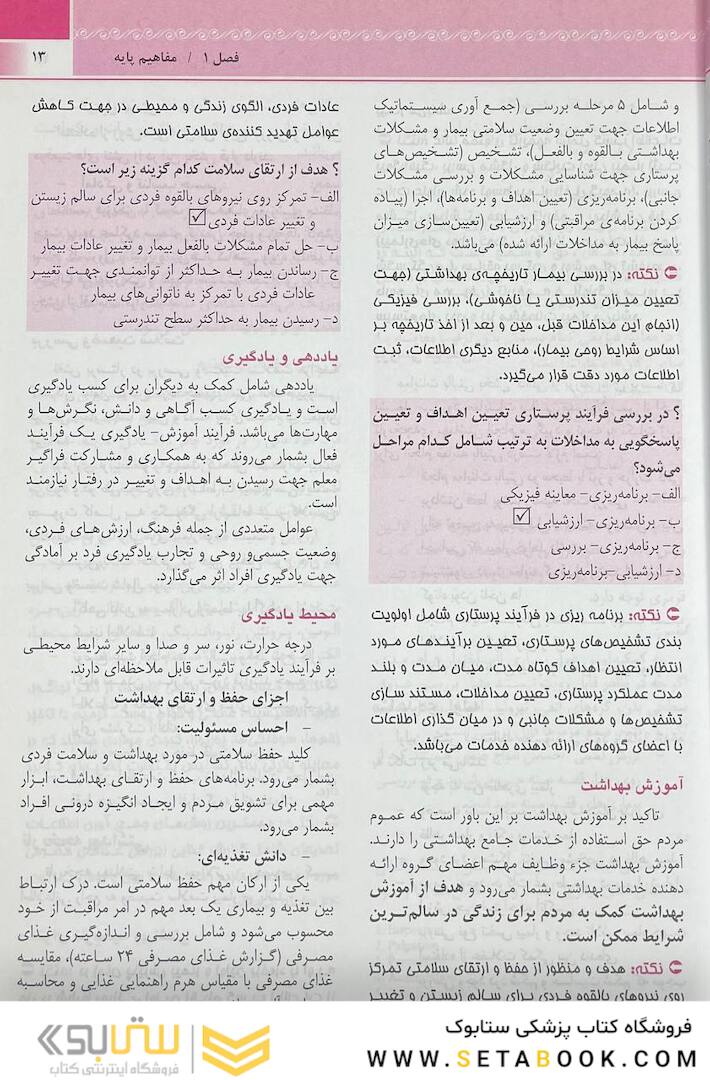 فصل ۱ / مفاهیم پایه
۱۳
و شامل ۵ مرحله بررسی (جمع آوری سیستماتیک
اطلاعات جهت تعیین وضعیت سلامتی بیمار و مشکلات
بهداشتی بالقوه و بالفعل)، تشخیص (تشخیص‌های
پرستاری جهت شناسایی مشکلات و بررسی مشکلات
جانبی)، برنامه‌ریزی (تعیین اهداف و برنامه‌ها)، اجرا (پیاده
کردن برنامه‌ی مراقبتی) و ارزشیابی (تعیین‌سازی میزان
پاسخ بیمار به مداخلات ارائه شده) می‌باشد.
نکته: در بررسی بیمار تاریخچه‌ی بهداشتی (جهت
تعیین میزان تندرستی یا ناخوشی)، بررسی فیزیکی
(انجام این مداخلات قبل، حین و بعد از اخذ تاریخچه بر
اساس شرایط روحی بیمار)، منابع دیگری اطلاعات، ثبت
اطلاعات مورد دقت قرار می‌گیرد.
؟ در بررسی فرآیند پرستاری تعیین اهداف و تعیین
پاسخگویی به مداخلات به ترتیب شامل کدام مراحل
می‌شود؟
الف- برنامه‌ریزی- معاینه فیزیکی
ب- برنامه‌ریزی- ارزشیابی ☑
ج- برنامه‌ریزی- بررسی
د- ارزشیابی-برنامه‌ریزی
نکته: برنامه ریزی در فرآیند پرستاری شامل اولویت
بندی تشخیص‌های پرستاری، تعیین برآیندهای مورد
انتظار، تعیین اهداف کوتاه مدت، میان مدت و بلند
مدت عملکرد پرستاری، تعیین مداخلات، مستند سازی
تشخیص‌ها و مشکلات جانبی و در میان گذاری اطلاعات
با اعضای گروه‌های ارائه دهنده خدمات می‌باشد.
آموزش بهداشت
تاکید بر آموزش بهداشت بر این باور است که عموم
مردم حق استفاده از خدمات جامع بهداشتی را دارند.
آموزش بهداشت جزء وظایف مهم اعضای گروه ارائه
دهنده خدمات بهداشتی بشمار می‌رود و هدف از آموزش
بهداشت کمک به مردم برای زندگی در سالم‌ترین
شرایط ممکن است.
نکته: هدف و منظور از حفظ و ارتقای سلامتی تمرکز
روی نیروهای بالقوه فردی برای سالم زیستن و تغییر
عادات فردی، الگوی زندگی و محیطی در جهت کاهش
عوامل تهدید کننده‌ی سلامتی است.
؟ هدف از ارتقای سلامت کدام گزینه زیر است؟
الف- تمرکز روی نیروهای بالقوه فردی برای سالم زیستن
و تغییر عادات فردی ☑
ب- حل تمام مشکلات بالفعل بیمار و تغییر عادات بیمار
ج- رساندن بیمار به حداکثر از توانمندی جهت تغییر
عادات فردی با تمرکز به ناتوانی‌های بیمار
د- رسیدن بیمار به حداکثر سطح تندرستی
یاددهی و یادگیری
یاددهی شامل کمک به دیگران برای کسب یادگیری
است و یادگیری کسب آگاهی و دانش، نگرش‌ها و
مهارت‌ها می‌باشد. فرآیند آموزش- یادگیری یک فرآیند
فعال بشمار می‌روند که به همکاری و مشارکت فراگیر
معلم جهت رسیدن به اهداف و تغییر در رفتار نیازمند
است.
عوامل متعددی از جمله فرهنگ، ارزش‌های فردی،
وضعیت جسمی‌و روحی و تجارب یادگیری فرد بر آمادگی
جهت یادگیری افراد اثر می‌گذارد.
محیط یادگیری
درجه حرارت، نور، سر و صدا و سایر شرایط محیطی
بر فرآیند یادگیری تاثیرات قابل ملاحظه‌ای دارند.
اجزای حفظ و ارتقای بهداشت
– احساس مسئولیت:
کلید حفظ سلامتی در مورد بهداشت و سلامت فردی
بشمار می‌رود. برنامه‌های حفظ و ارتقای بهداشت، ابزار
مهمی برای تشویق مردم و ایجاد انگیزه درونی افراد
بشمار می‌رود.
– دانش تغذیه‌ای:
یکی از ارکان مهم حفظ سلامتی است. درک ارتباط
بین تغذیه و بیماری یک بعد مهم در امر مراقبت از خود
محسوب می‌شود و شامل بررسی و اندازه‌گیری غذای
مصرفی (گزارش غذای مصرفی ۲۴ ساعته)، مقایسه
غذای مصرفی با مقیاس هرم راهنمایی غذایی و محاسبه
فروشگاه کتاب پزشکی ستابوک
WWW.SETABOOK.COM
ستابوک
فروشگاه اینترنتی کتاب